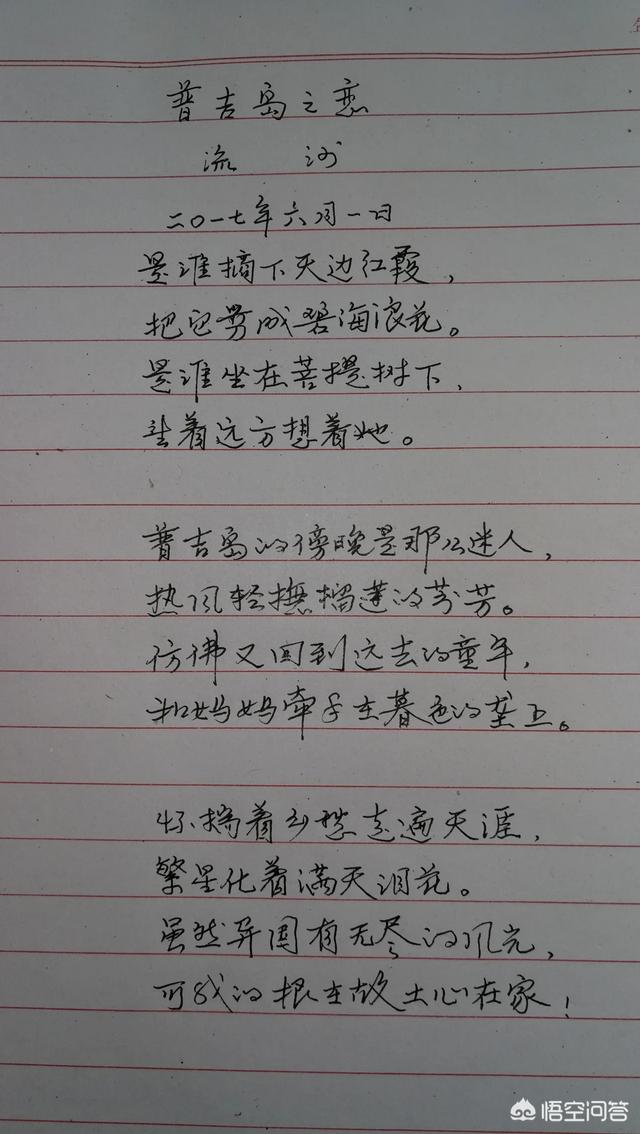 普吉岛之恋
流 沙
二〇一七年六月一日
是谁摘下天边红霞，
把它剪成碧海浪花。
是谁坐在菩提树下，
望着远方想着她。
普吉岛的傍晚是那么迷人，
热风轻抚榴莲的芬芳。
仿佛又回到远去的童年，
和妈妈牵手在暮色的垄上。
怀揣着乡愁走遍天涯，
繁星化着满天泪花。
虽然异国有无尽的风光，
可我的根在故土心在家！
悟空问答